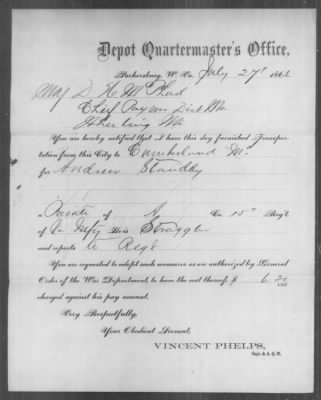 Depot Quartermaster's Office,
Parkersburg, W. Va. July 27th 1864
Maj D. H. McPhail
Chief Paym Dist
Wheeling Va
You are hereby notified that I have this day furnished Transpor-
tation from this City to Cumberland M.
for Andrew Standby
a Private of Co. 15th Reg't
of Va Infy He is Straggler
and reports to Regt
You are requested to adopt such measures as are authorized by General
Order of the War Department, to have the cost thereof, $ 6
charged against his pay amount.
Very Respectfully,
Your Obedient Servant,
VINCENT PHELPS,
Capt. & A. Q. M.